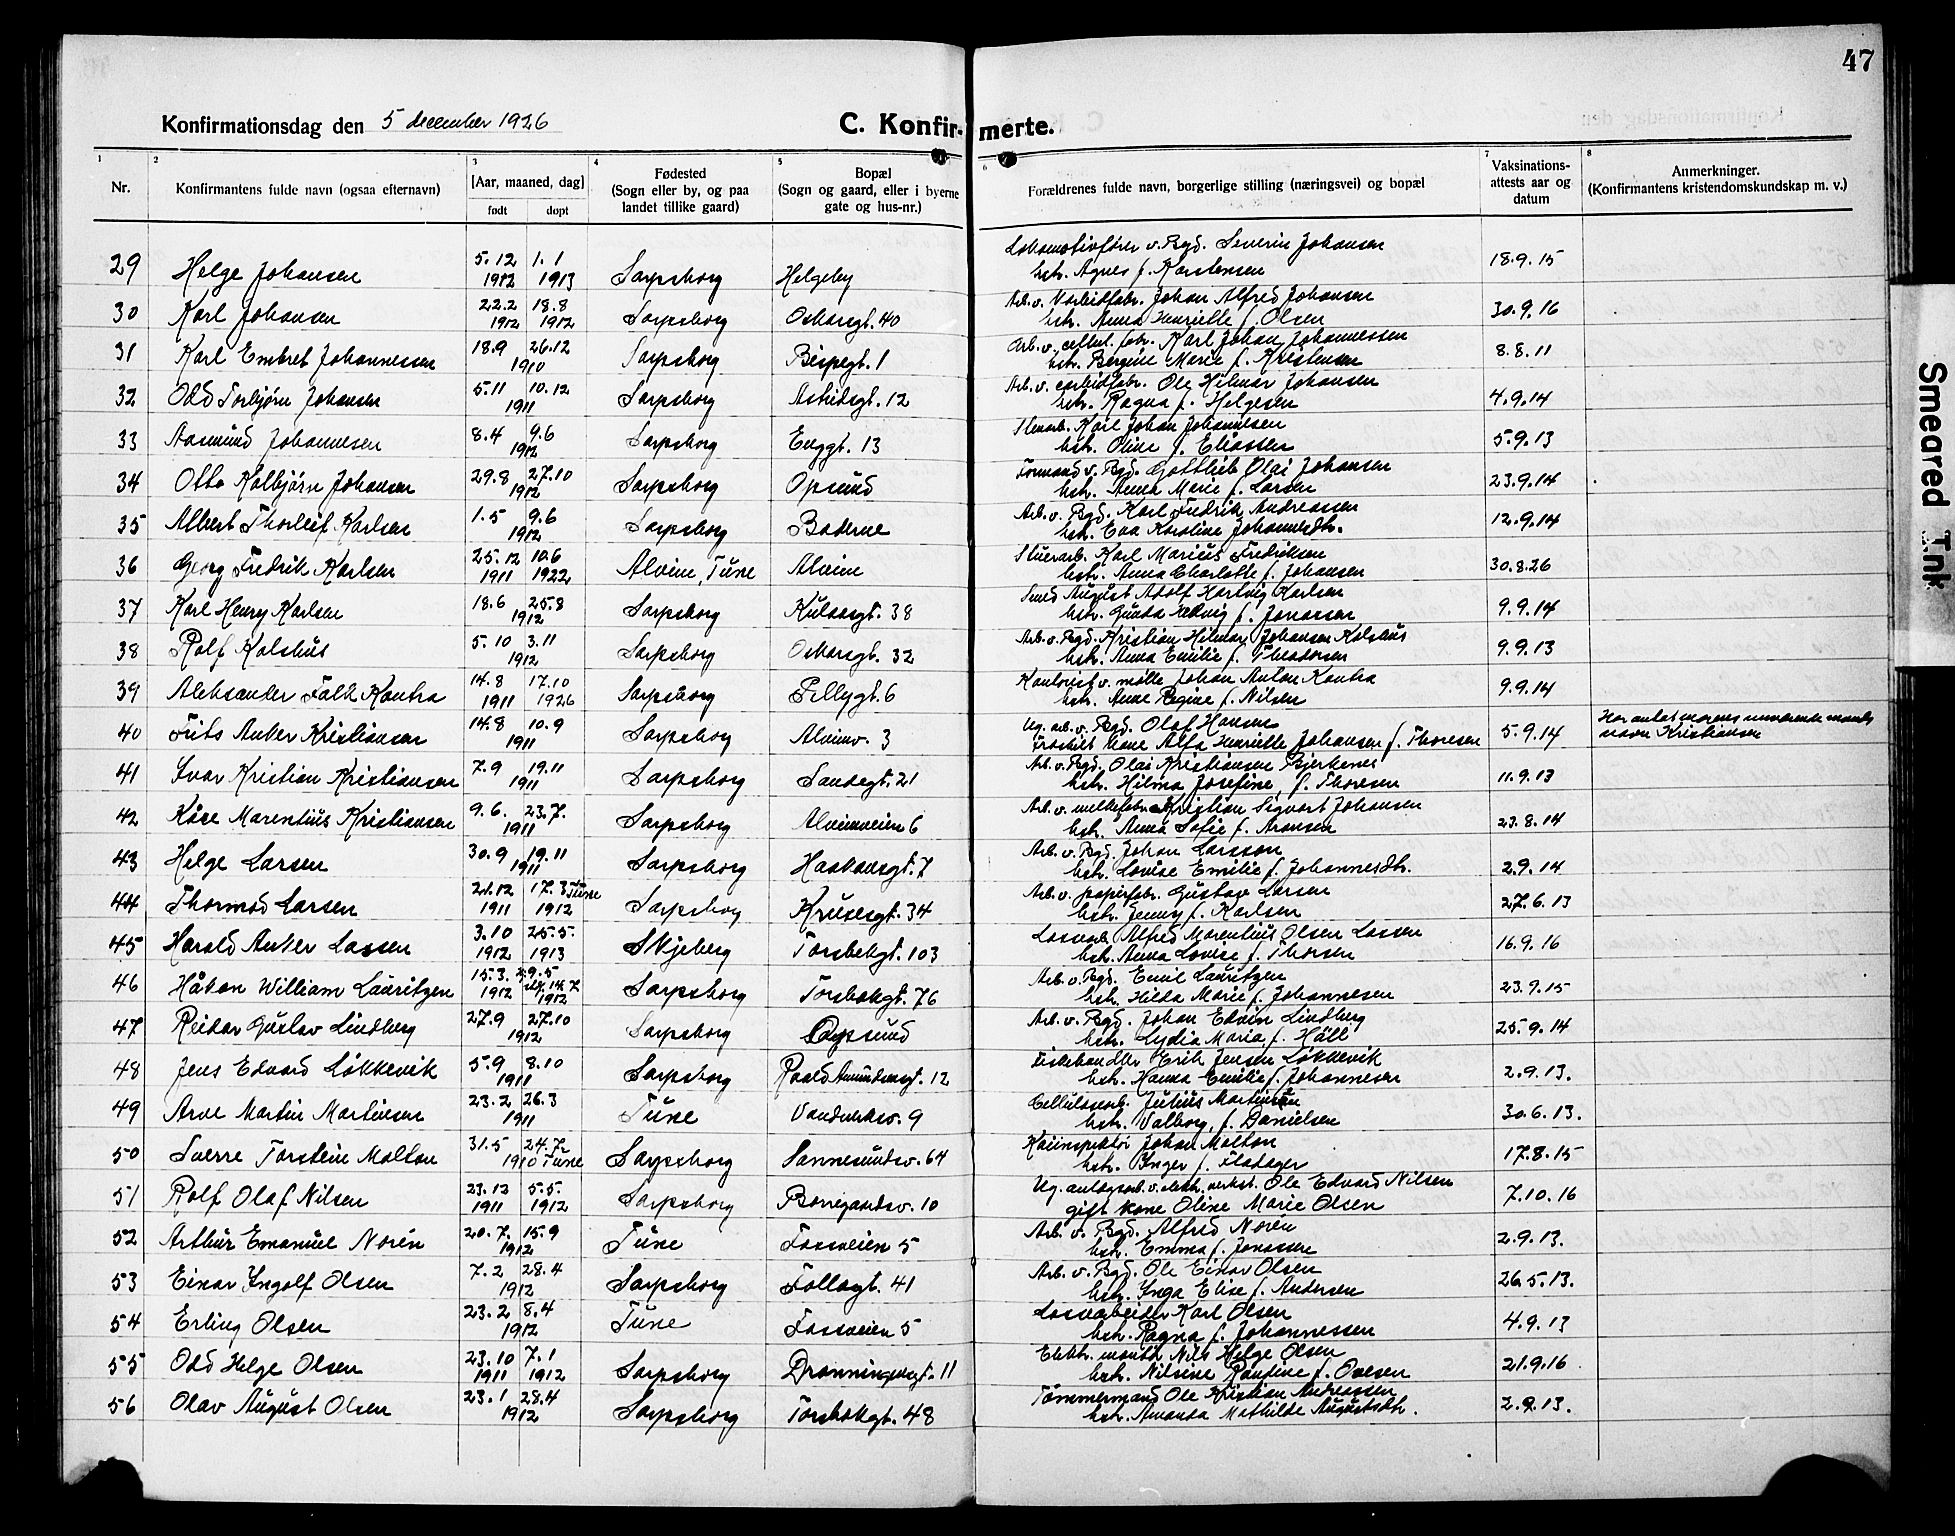 47
Konfirmationsdag den 5 december 1926
C. Konfirmerte.
1 2 3 4 5 6 7 8
Nr.
Konfirmantens fulde navn (ogsaa efternavn)
[Aar, maaned, dag]
født døpt
Fødested
(Sogn eller by, og paa
landet tillike gaard)
Bopæl
(Sogn og gaard, eller i byerne
gate og hus-nr.)
Forældrenes fulde navn, borgerlige stilling (næringsvei) og bopæl
Vaksinations-
attests aar og
datum
Anmerkninger.
(Konfirmantens kristendomskundskap m. v.)
29 Helge Johansen 5.12 1912 1.1 1913 Sarpsborg Helgeby Lokomotivfører v. Bgd. Severin Johansen
hstr. Agnes f. Karstensen 18.9.15
30 Karl Johansen 22.2 1912 18.8 1912 Sarpsborg Oskarsgt. 40 Arb. v. Johan Alfred Johansen
hstr. Anna Henriette f. Olsen 30.9.16
31 Karl Embret Johannessen 18.9 26.12 1910 Sarpsborg Bispegt. 1 Arb. v. cellul. fabr. Karl Johan Johannessen
hstr. Bergine Marie f. Kristensen 8.8.11
32 Odd Torbjørn Johansen 5.11 10.12 1911 Sarpsborg Astridsgt. 12 Arb. v. carbidfabr. Ole Hilmar Johansen
hstr. Ragna f. Helgesen 4.9.14
33 Aasmund Johannesen 8.4 9.6 1912 Sarpsborg Enggt. 13 Stenarb. Karl Johan Johannesen
hstr. Oline f. Eliassen 5.9.13
34 Otto Kolbjørn Johansen 29.8 27.10 1912 Sarpsborg Opsund Formand v. Bgd. Gottlieb Olai Johansen
hstr. Anna Marie f. Larsen 23.9.14
35 Albert Thorleif Karlsen 1.5 9.6 1912 Sarpsborg Baderne Arb. v. Bgd. Karl Fredrik Andreassen
hstr. Eva Karoline Johannesdtr. 12.9.14
36 Georg Fredrik Karlsen 25.12 1911 10.6 1922 Alvim, Tune Alvim Stuerarb. Karl Marius Fredriksen
hstr. Anna Charlotte f. Johansen 30.8.26
37 Karl Henry Karlsen 18.6 25.8 1912 Sarpsborg Kulaasgt. 38 Smed August Adolf Hartvig Karlsen
hstr. Gunda Hedvig f. Jonassen 9.9.14
38 Rolf Kolshus 5.10 3.11 1912 Sarpsborg Oskarsgt. 32 Arb. v. Bgd. Kristian Hilmar Johansen Kolshus
hstr. Anna Emilie f. Theodorsen 9.9.13
39 Aleksander Falk Kontra 14.8 1911 17.10 1926 Sarpsborg Pellygt. 6 Kontorist v. mølle Johan Anton Kontra
hstr. Anne Regine f. Nilsen 9.9.14
40 Frits Anker Kristiansen 14.8 10.9 1911 Sarpsborg Alvimv. 3 Ug. arb. v. Bgd. Olaf Hansen
Fraskilt kone Alfa Henriette Johansen f. Thoresen 5.9.14 Har antat morens nuværende mands
navn Kristiansen
41 Ivar Kristian Kristiansen 7.9 19.11 1911 Sarpsborg Sandegt. 21 Arb. v. Bgd. Olai Kristiansen Bjerknes
hstr. Hilma Josefine, f. Thoresen 11.9.13
42 Kåre Marentius Kristiansen 9.6. 23.7. 1911 Sarpsborg Alvimveien 6 Arb. v. Kristian Sigvart Johansen
hstr. Anna Sofie f. Aronsen 23.8.14
43 Helge Larsen 30.9 19.11 1911 Sarpsborg Haakonsgt. 7 Arb. v. Bgd. Johan Larsson
hstr. Lovise Emilie f. Johannesdtr. 2.9.14
44 Thormod Larsen 21.12 1911 17.3 Tune 1912 Sarpsborg Krusesgt. 34 Arb. v. papirfabr. Gustav Larsen
hstr. Jenny f. Karlsen 27.6.13
45 Harald Anker Lassen 3.10 1912 25.5. 1913 Skjeberg Torsbekgt. 103 Lossearb. Alfred Marentius Olsen Lassen
hstr. Anna Lovise f. Thorsen 16.9.16
46 Håkon William Lauritzen 15.3. 1912 29.5 14.7 1912 Sarpsborg Torsbekgt. 76 Arb. v. Bgd. Emil Lauritzen
hstr. Hilda Marie f. Johannesen 23.9.15
47 Reidar Gustav Lindberg 27.9 27.10 1912 Sarpsborg Opsund Arb. v. Bgd. Johan Edvin Lindberg
hstr. Lydia Maria f. Häll 25.9.14
48 Jens Edvard Løkkevik 5.9 8.10 1911 Sarpsborg Roald Amundsensgt. 12 Fiskehandler Erik Jensen Løkkevik
hstr. Hanna Emilie f. Johannesen 2.9.13.
49 Arne Martin Martinsen 23.2 26.3 1911 Tune Vandverksv. 9 Cellulosearb. Julius Martinsen
hstr. Valborg, f. Danielsen 30.6.13.
50 Sverre Torstein Molton 31.5 24.7 1910 Tune Sarpsborg Sannesundsv. 64 Kaiinspektør Johan Molton
hstr. Inger f. Flodager 17.8.15
51 Rolf Olaf Nilsen 23.12 1911 5.5. 1912 Sarpsborg Borregaardsv. 10 Ug. anlægsarb. v. elektr. verkst. Ole Edvard Nilsen
gift kone Oline Marie Olsen 7.10.16
52 Arthur Emanuel Norén 20.7. 15.9 1912 Tune Fossveien 5 Arb. v. Bgd. Alfred Norén
hstr. Emma f. Jonassen 2.9.13.
53 Einar Ingolf Olsen 7.2 28.4 1912 Sarpsborg Follogt. 41 Arb. v. Bgd. Ole Einar Olsen
hstr. Inga Elise f. Andersen 26.5.13.
54 Erling Olsen 23.2 8.4 1912 Tune Fossveien 5 Lossearbeider Karl Olsen
hstr. Ragna f. Johannessen 4.9.13
55 Odd Helge Olsen 23.10 1911 7.1 1912 Sarpsborg Dronningensgt. 11 Elektr. montør Nils Helge Olsen
hstr. Nilsine Randine f. Ovesen 21.9.16
56 Olav August Olsen 23.1 28.4 1912 Sarpsborg Torsbekgt. 48 Tømmermand Ole Kristian Andreassen
hstr. Amanda Mathilde Augustsdtr. 2.9.13.
Smeared Ink